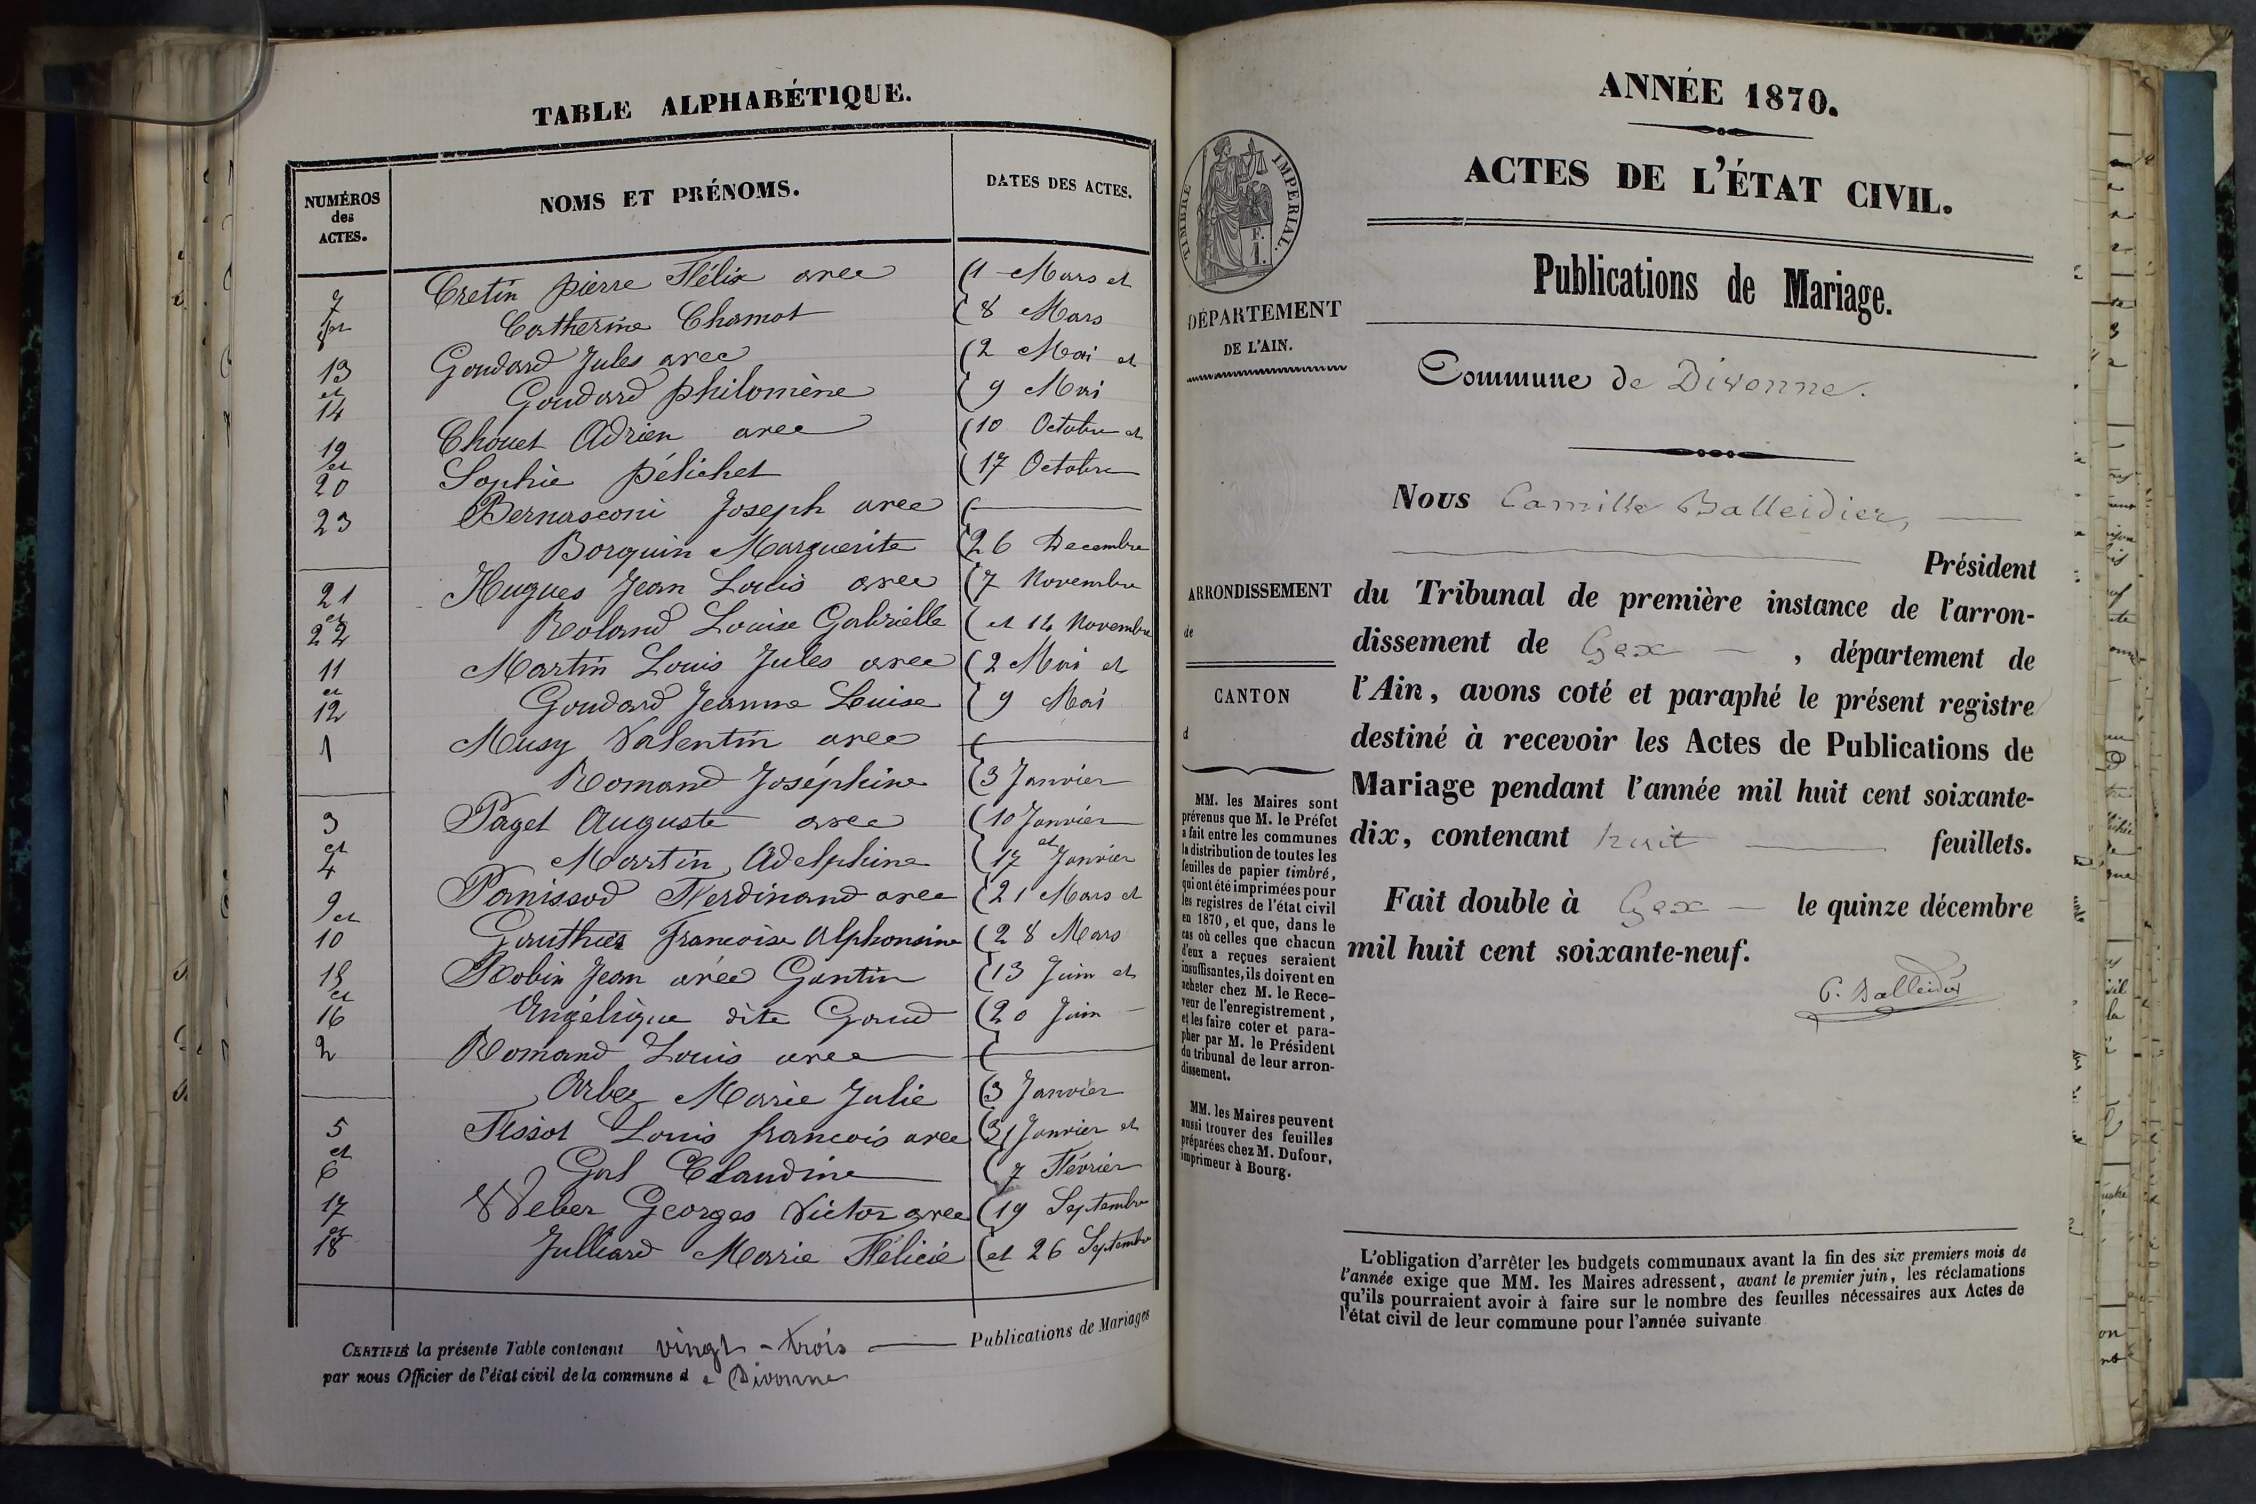 TABLE ALPHABÉTIQUE.
NUMÉROS
des
ACTES.
NOMS ET PRÉNOMS.
DATES DES ACTES.
7 Cretin pierre Félix avec (1 Mars et
et 8 Catherine Chamot (8 Mars
13 Goudard Jules avec (2 Mai et
et
14 Goudard philomène (9 Mai
19 Chouet Adrien avec (10 Octobre et
et
20 Sophie pélichet (17 Octobre
23 Bernasconi Joseph avec (
Borquin Marguerite (26 Decembre
21 Hugues Jean Louis avec (7 Novembre
et
22 Roland Louise Gabrielle (et 14 Novembre
11 Martin Louis Jules avec (2 Mai et
et
12 Goudard Jeanne Louise (9 Mai
1 Musy Valentin avec (
Romand Joséphine (3 Janvier
3 Paget Auguste avec (10 Janvier
et et
4 Martin Adelphine (17 Janvier
9 Panissod Ferdinand avec (21 Mars et
et
10 Gauthier françoise Alphonsine (28 Mars
15 Robin Jean avec Gantin (13 Juin et
et
16 Angélique dite Goud (20 Juin
2 Romand Louis avec (
Arbez Marie Julie (3 Janvier
5 Tissot Louis françois avec (31 Janvier et
et
6 Gal Claudine (7 Février
17 Weber Georges Victor avec (19 Septembre
et
18 Julliard Marie Félicie (et 26 Septembre
CERTIFIÉ la présente Table contenant vingt-trois Publications de Mariages
par nous Officier de l'état civil de la commune de Divonne
ANNÉE 1870.
ACTES DE L'ÉTAT CIVIL.
Publications de Mariage.
TIMBRE IMPERIAL.
F.
1.
DÉPARTEMENT
DE L'AIN.
Commune de Divonne.
Nous Camille Balleidier,
Président
du Tribunal de première instance de l'arron-
dissement de Gex, département de
l'Ain, avons coté et paraphé le présent registre
destiné à recevoir les Actes de Publications de
Mariage pendant l'année mil huit cent soixante-
dix, contenant huit feuillets.
Fait double à Gex le quinze décembre
mil huit cent soixante-neuf.
C. Balleidier
ARRONDISSEMENT
de
CANTON
d
MM. les Maires sont
prévenus que M. le Préfet
a fait entre les communes
la distribution de toutes les
feuilles de papier timbré,
qui ont été imprimées pour
les registres de l'état civil
en 1870, et que, dans le
cas où celles que chacun
d'eux a reçues seraient
insuffisantes, ils doivent en
acheter chez M. le Rece-
veur de l'enregistrement,
et les faire coter et para-
pher par M. le Président
du tribunal de leur arron-
dissement.
MM. les Maires peuvent
aussi trouver des feuilles
préparées chez M. Dufour,
imprimeur à Bourg.
L'obligation d'arrêter les budgets communaux avant la fin des six premiers mois de
l'année exige que MM. les Maires adressent, avant le premier juin, les réclamations
qu'ils pourraient avoir à faire sur le nombre des feuilles nécessaires aux Actes de
l'état civil de leur commune pour l'année suivante